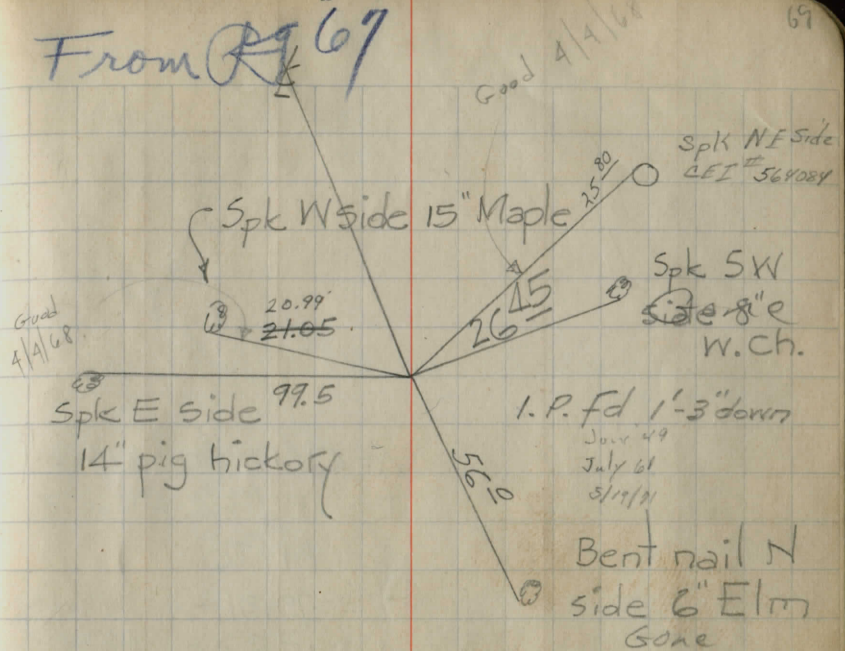 69
From Pg 67
Good 4/4/68
Spk NE Side
CEI # 564084
25.80
Spk W side 15" Maple
Spk SW
side 8"
W. Ch.
26 45
20.99'
21.05
Good
4/4/68
99.5
Spk E side
14" pig hickory
I. P. fd 1'-3" down
49
July 61
56 0
Bent nail N
side 6" Elm
Gone